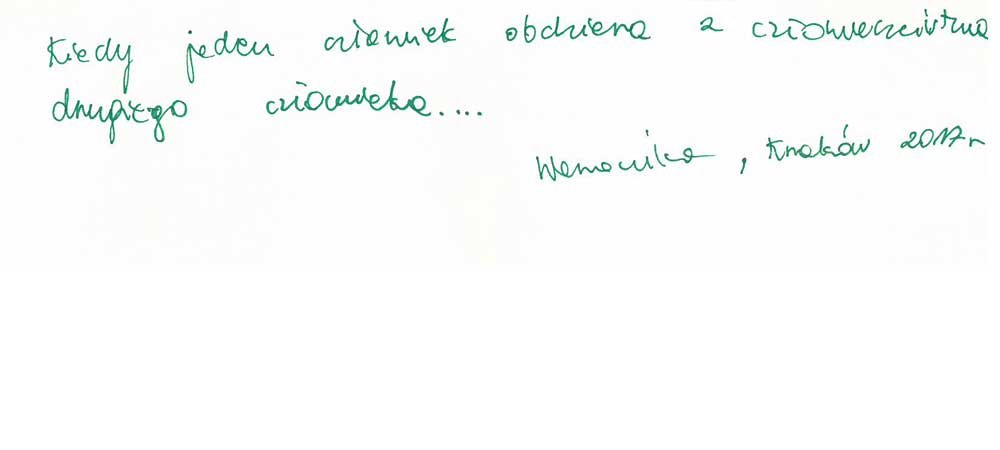 Kiedy jeden człowiek obdziera z człowieczeństwa
drugiego człowieka....
Weronika, Kraków 2017r